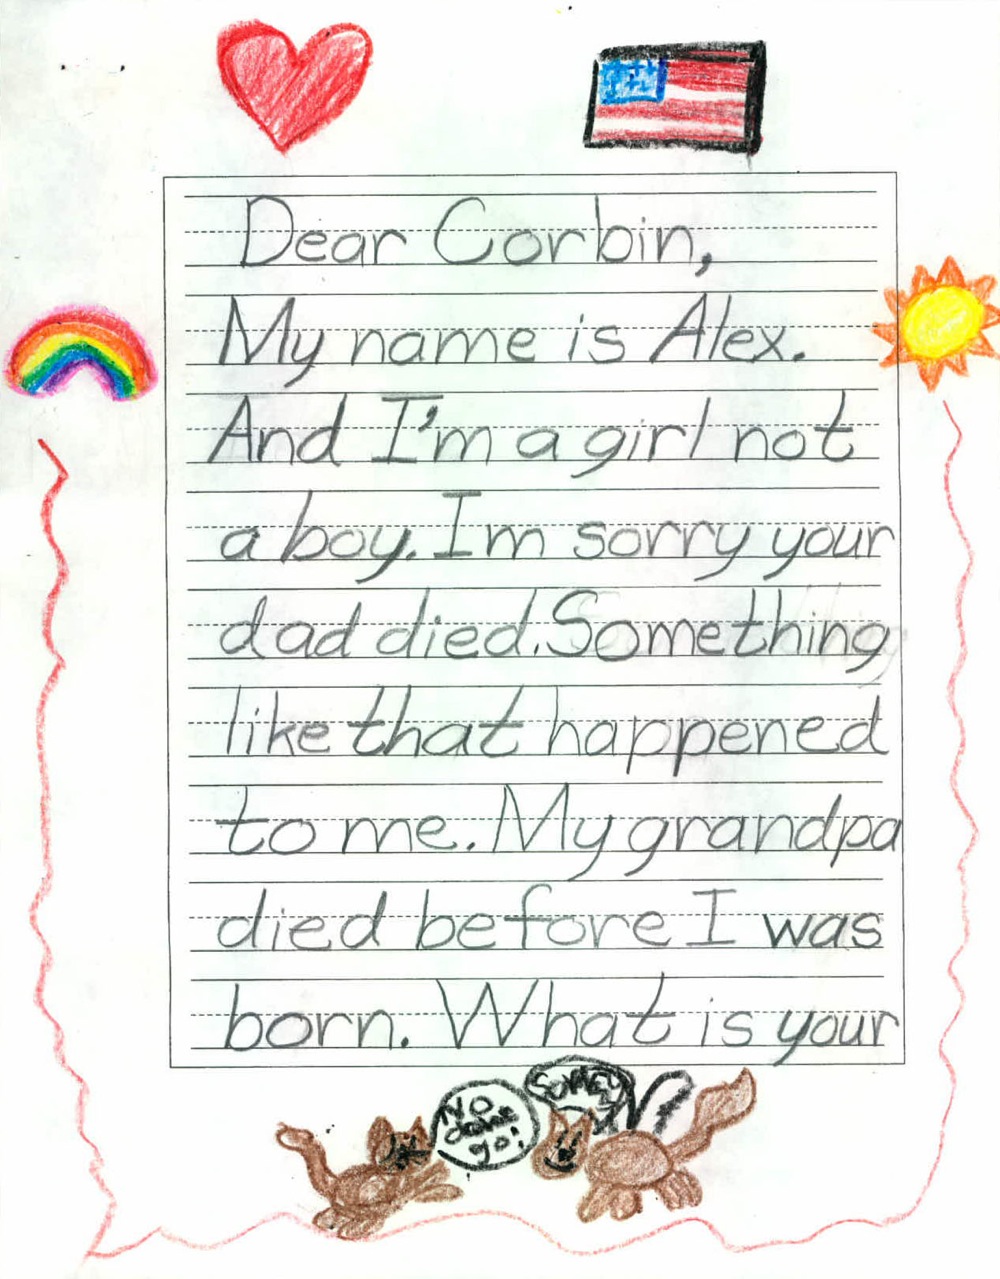 Dear Corbin,
My name is Alex.
And I'm a girl not
a boy. Im sorry your
dad died. Something
like that happened
to me. My grandpa
died before I was
born. What is your
No
dont
go!
Sorrey